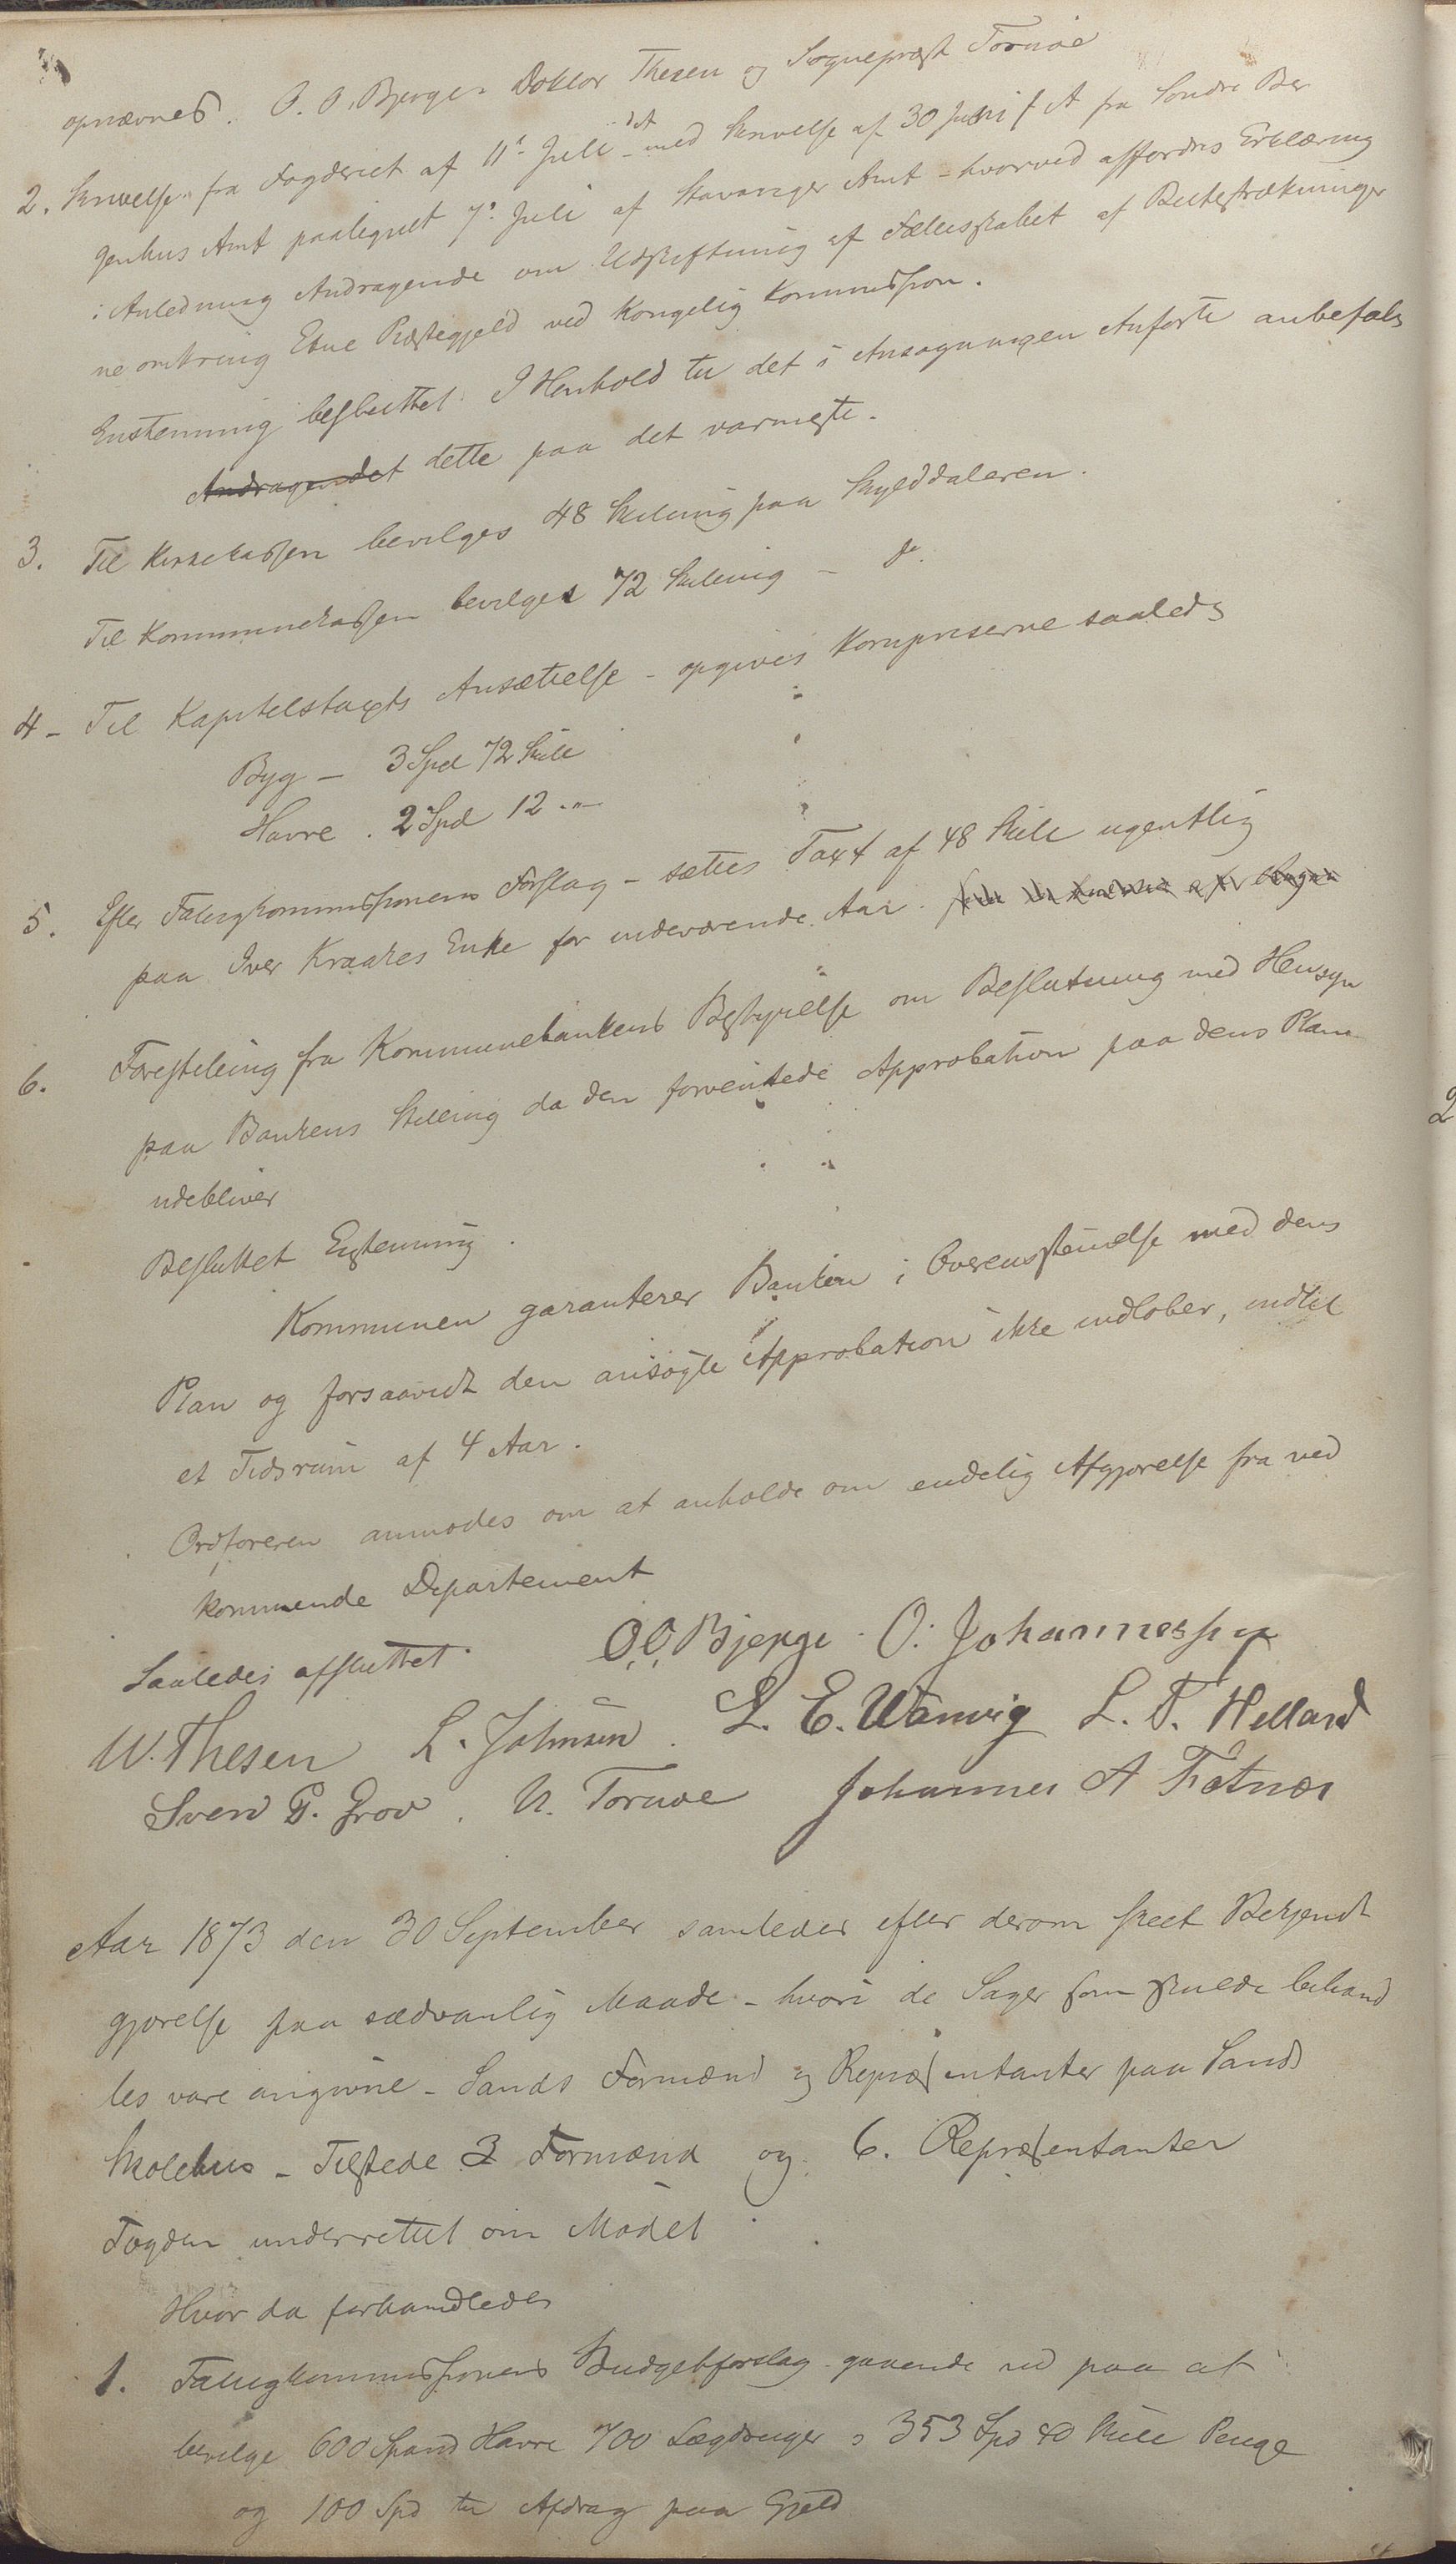 opnævnes. O. O. Bjerge, Doktor Thesen og Sogneprest Tornøe
2. Skrivelse fra Fogderiet af 11te Juli det med Skrivelse af 30 Juni f A fra Søndre Ber
genhus Amt paalignet 7de Juli af Stavanger Amt - hvorved affordres Erklæring
i Anledning Andragende om Udskiftning af Fælleskabet af Beitestrækninger
ne omkring Etne Præstegjeld ved Kongelig Kommission.
Enstemmig besluttet: I Henhold til det i Ansøgningen Anførte anbefales
Andragendet dette paa det varmeste.
3. Til Kirkekassen bevilges 48 Skilling paa Skylddaleren.
Til Kommunekassen bevilges 72 Skilling - do.
4 - Til Kapitelstaxts Ansættelse - opgives Kornpriserne saaledes
Byg - 3 Spd 72 Skill
Havre . 2 Spd 12 -"-
5. Efter Fattigkommissionens Forslag - sættes Taxt af 48 Skill ugentlig
paa Iver Kraakes Enke for indeværende Aar.
6. Forestilling fra Kommunebankens Bestyrelse om Beslutning med Hensyn
paa Bankens Stilling da den forventede Approbation paa dens Plan
udebliver
Besluttet Enstemmig.
Kommunen garanterer Banken i Overensstemmelse med dens
Plan og forsaavidt den ansøgte Approbation ikke indløber, indtil
et Tidsrum af 4 Aar.
Ordføreren anmodes om at anholde om endelig Afgjørelse fra ved
kommende Departement
Saaledes afsluttet. O. O. Bjerge. O. Johannessen
W. Thesen L. Johnsen. L. E. Wannvig L. T. Helland
Sven G. Grov. N. Tornøe Johannes A Fatnes
Aar 1873 den 30 September samledes efter derom skeet Bekjendt
gjørelse paa sædvanlig Maade - hvori de Sager som skulde behand
les vare angivne - Sands Formænd og Repræsentanter paa Sands
Skolehus - Tilstede 3 Formænd og 6. Repræsentanter
Fogden underrettet om Mødet
Hvor da forhandledes
1. Fattigkommissionens Budgetforslag gaaende ud paa at
bevilge 600 Spand Havre 700 Lægdsuger og 353 Spd 80 Skill Penge
og 100 Spd til Afdrag paa Gjeld